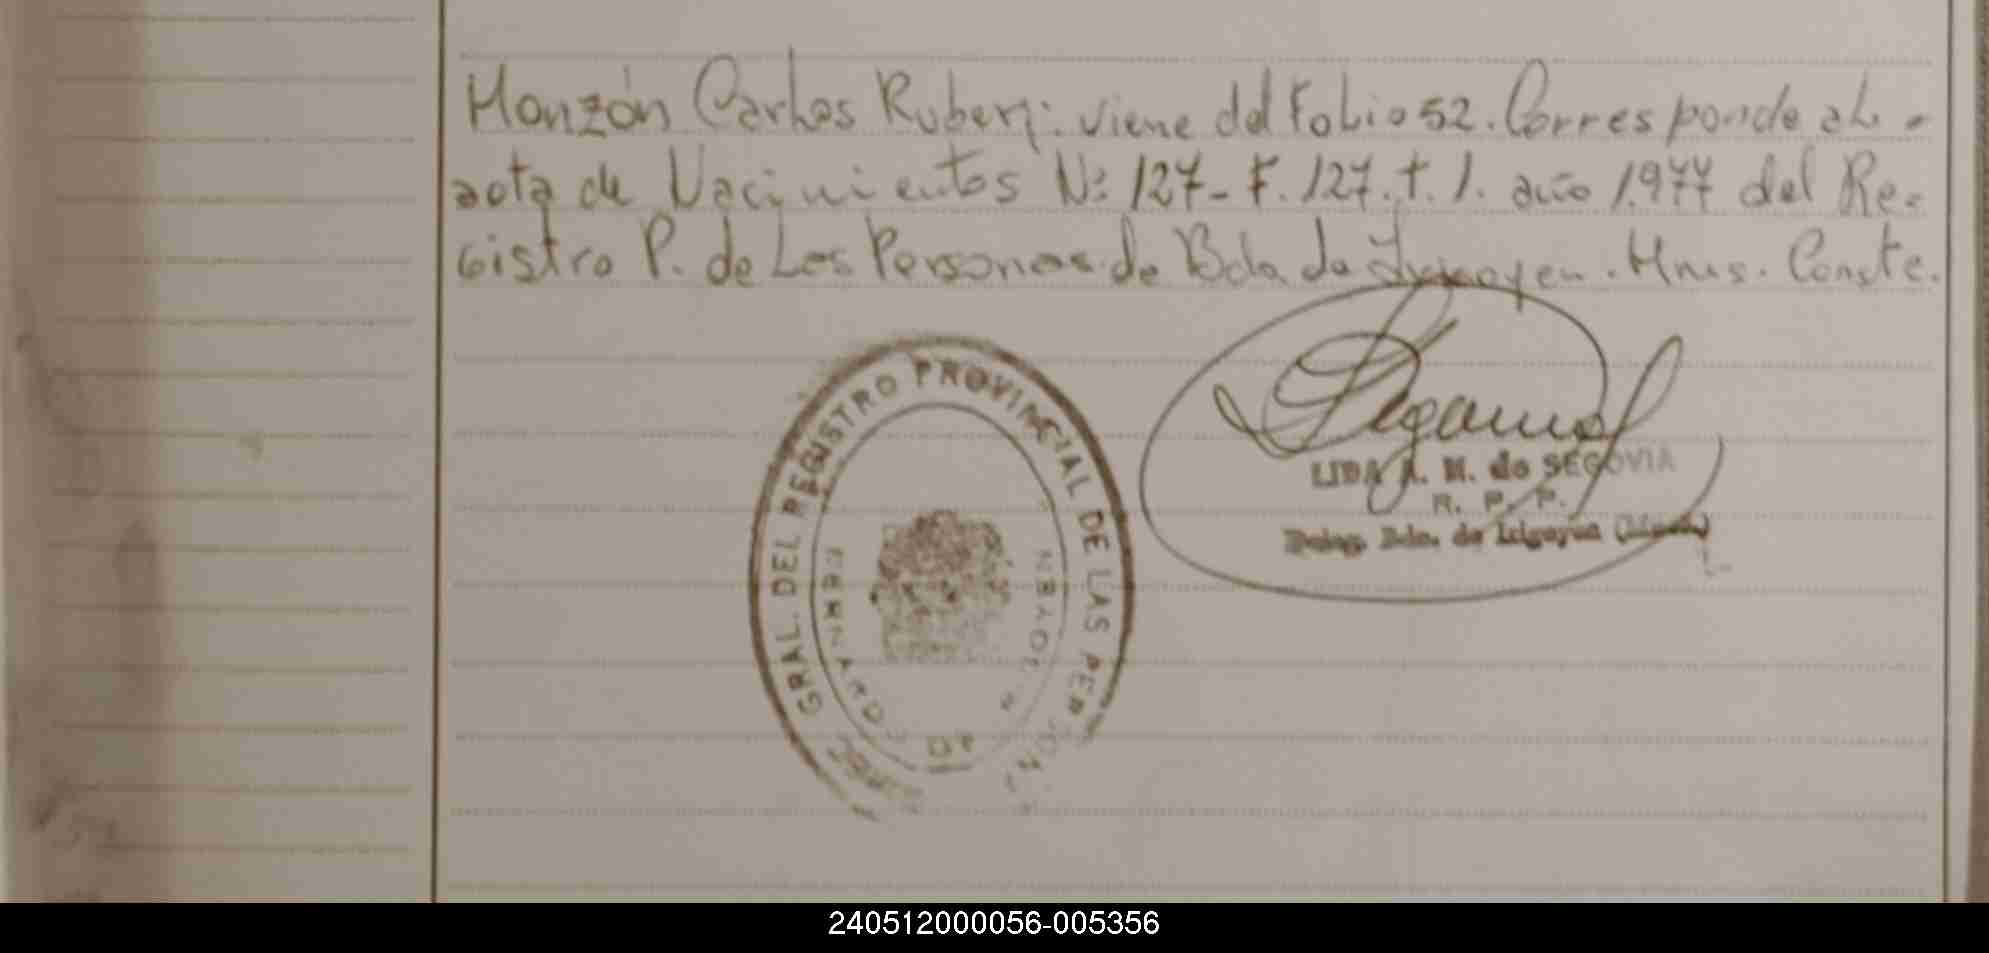 Monzón Carlos Ruben: viene del Folio 52. Corresponde al -
acta de Nacimientos Nº 127- F. 127. t. 1. año 1.977 del Re-
gistro P. de Las Personas de Bda. de Irigoyen. Mnes. Conste.
GRAL. DEL REGISTRO PROVINCIAL DE LAS
BERNARDO DE
LIDA A. M. de SEGOVIA
R. P. P.
Deleg. Bdo. de Irigoyen
240512000056-005356